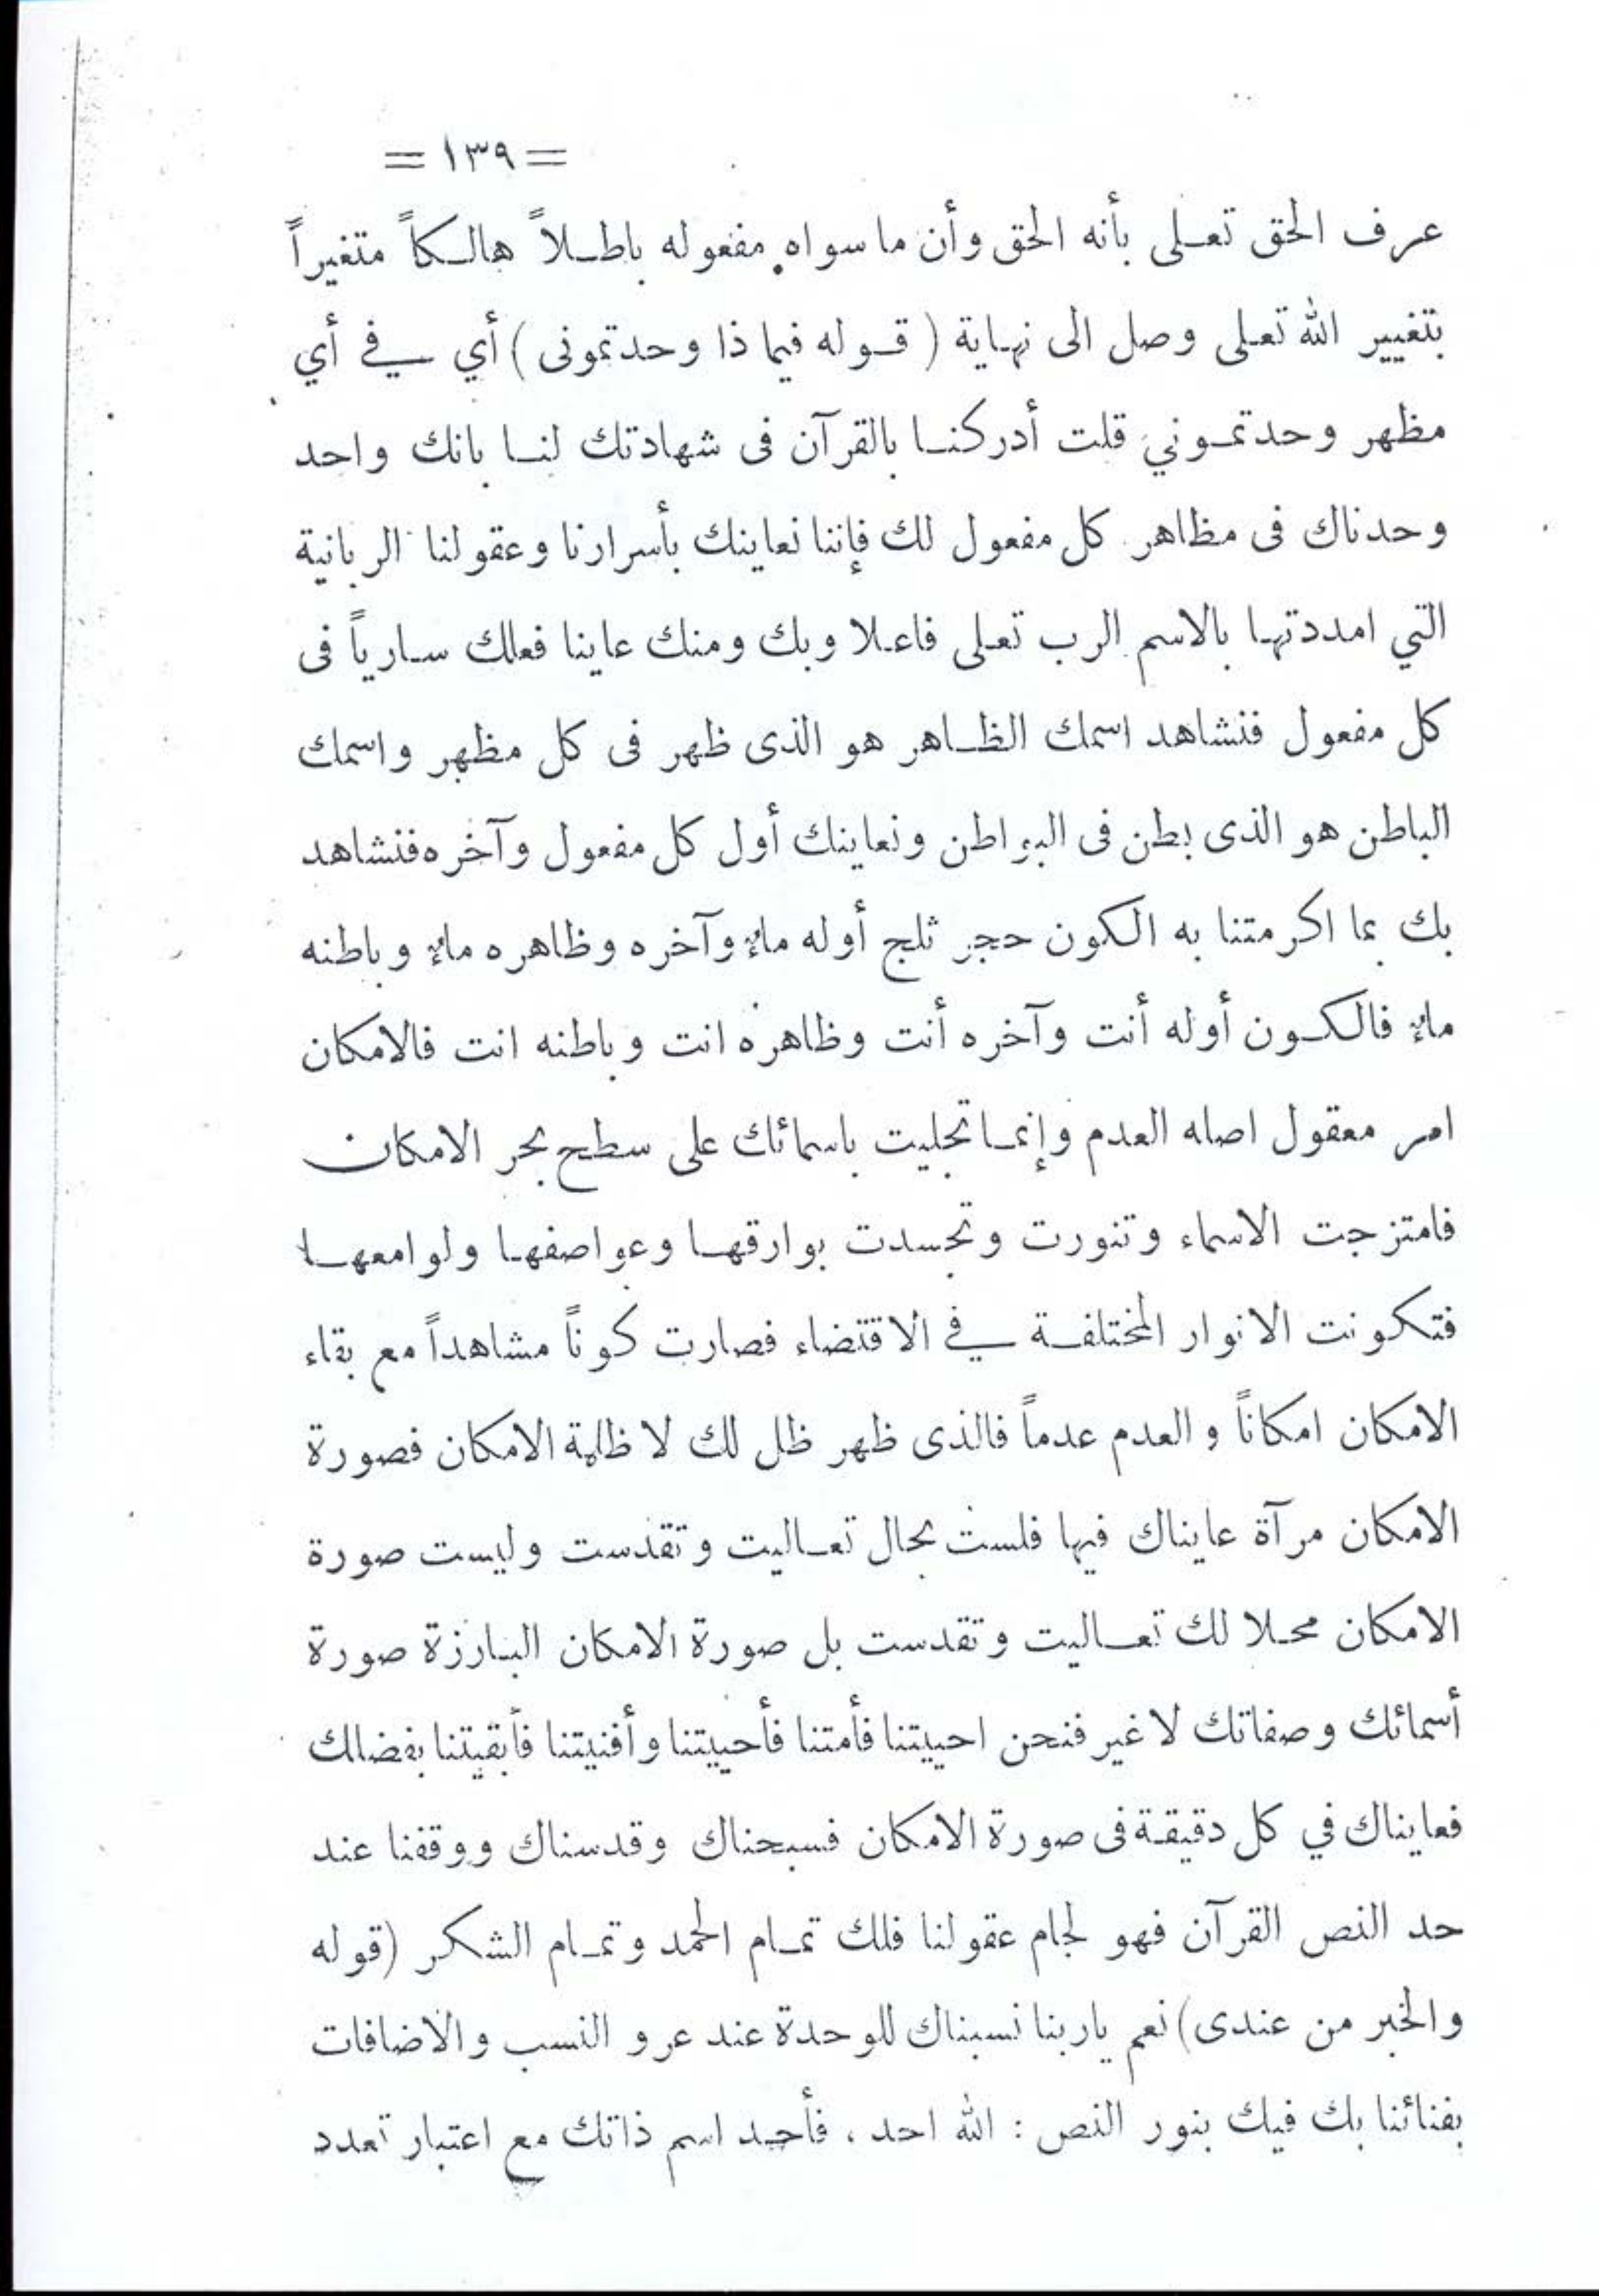 = ١٣٩ =
عرف الحق تعلى بأنه الحق وأن ما سواه مفعوله باطلاً هالكاً متغيراً
بتغيير الله تعلى وصل الى نهاية ( قوله فيما ذا وحدتمونى ) أي في أي
مظهر وحدتموني قلت أدركنا بالقرآن فى شهادتك لنا بانك واحد
وحدناك فى مظاهر كل مفعول لك فإننا نعاينك بأسرارنا وعقولنا الربانية
التي امددتها بالاسم الرب تعلى فاعلا وبك ومنك عاينا فعلك سارياً فى
كل مفعول فنشاهد اسمك الظاهر هو الذى ظهر فى كل مظهر واسمك
الباطن هو الذى بطن فى البواطن ونعاينك أول كل مفعول وآخره فنشاهد
بك بما اكرمتنا به الكون حجر ثلج أوله ماءٌ وآخره وظاهره ماءٌ وباطنه
ماءٌ فالكون أوله أنت وآخره أنت وظاهره انت وباطنه انت فالامكان
امر معقول اصله العدم وإنما تجليت باسمائك على سطح بحر الامكان
فامتزجت الاسماء وتنورت وتجسدت بوارقها وعواصفها ولوامعها
فتكونت الانوار المختلفة في الاقتضاء فصارت كوناً مشاهداً مع بقاء
الامكان امكاناً والعدم عدماً فالذى ظهر ظل لك لا ظلمة الامكان فصورة
الامكان مرآة عايناك فيها فلست بحال تعاليت وتقدست وليست صورة
الامكان محلا لك تعاليت وتقدست بل صورة الامكان البارزة صورة
أسمائك وصفاتك لا غير فنحن احييتنا فأمتنا فأحييتنا وأفنيتنا فأبقيتنا بفضلك
فعايناك في كل دقيقة فى صورة الامكان فسبحناك وقدسناك ووقفنا عند
حد النص القرآن فهو لجام عقولنا فلك تمام الحمد وتمام الشكر (قوله
والخبر من عندى) نعم ياربنا نسبناك للوحدة عند عرو النسب والاضافات
بفنائنا بك فيك بنور النص : الله احد ، فأحد اسم ذاتك مع اعتبار تعدد